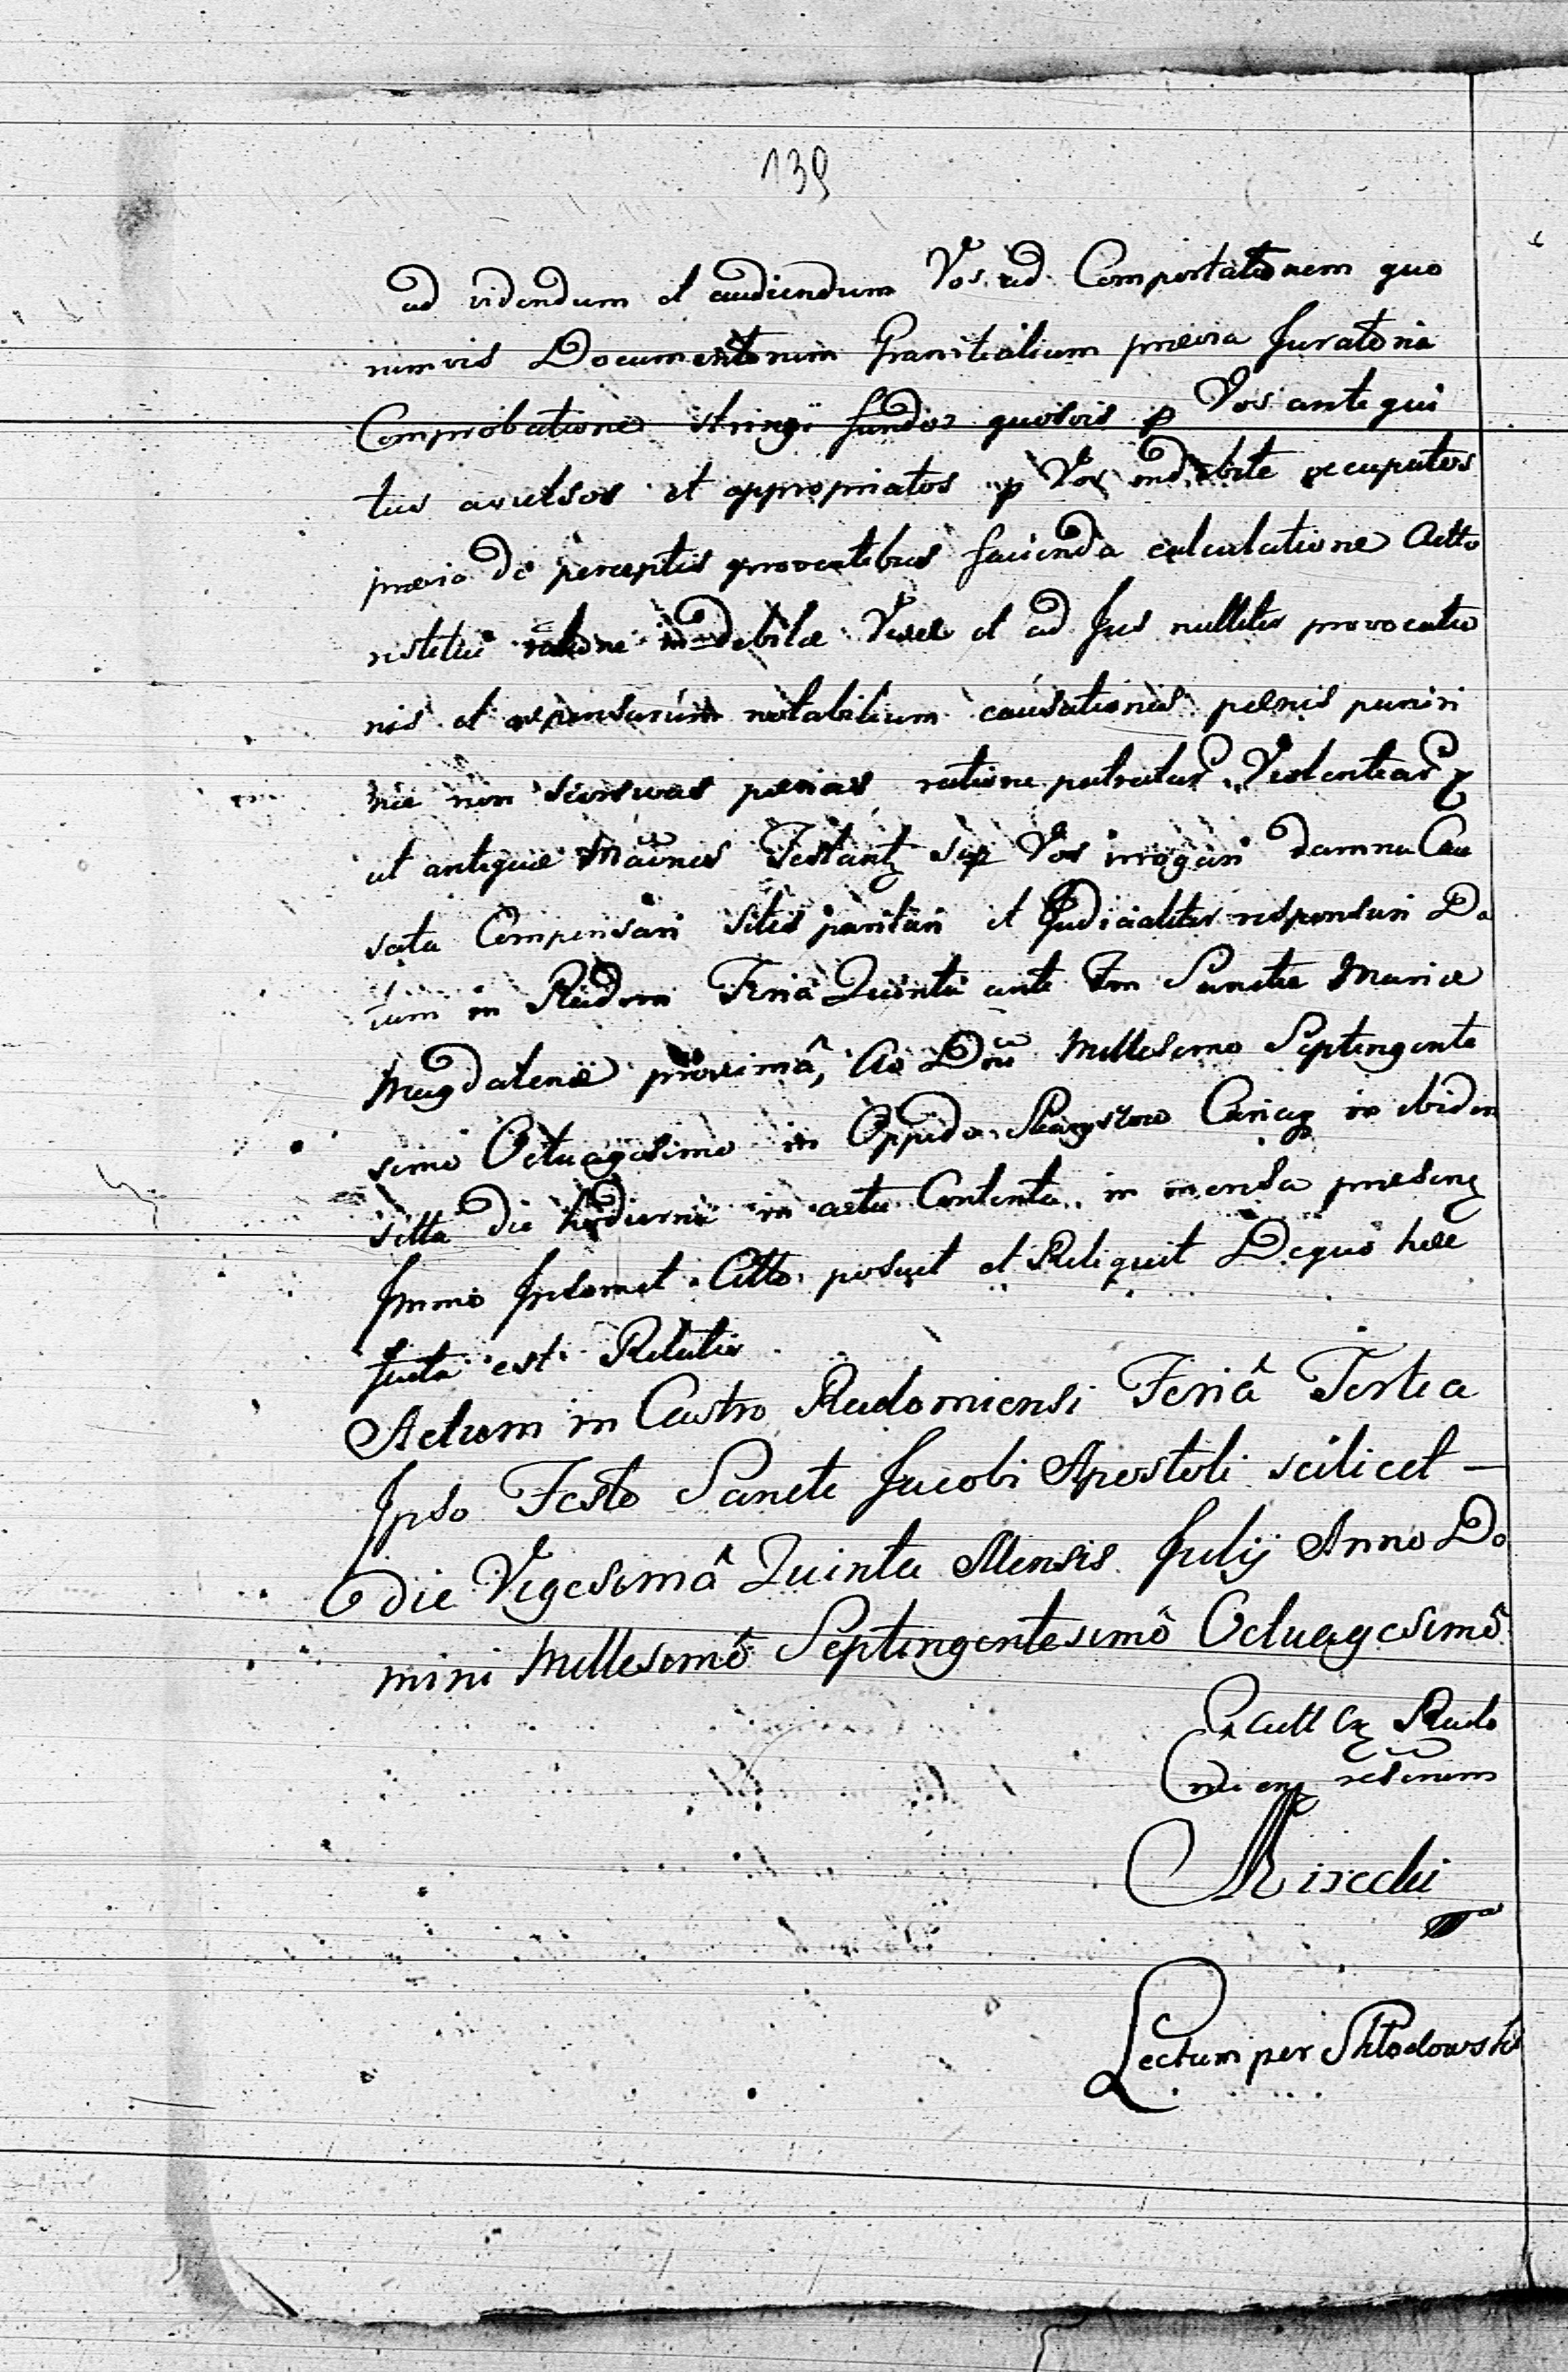 139
ad videndum et audiendum Vos ad Comportationem quo
rumvis Documentorum Granitialium praevia Juratoria
Comprobatione stringi fundos quosvis p Vos antiqui
tus avulsos et appropriatos p Vos indebite occupatos
praevia de perceptis proventibus facienda calculatione Actto
restitui ratione indebitae Vexae et ad Jus nulliter provocatio
nis et expensarum notabilium causationis paenis puniri
nec non poenas ratione patratar Violentiar
ut antiquae Testantz sup Vos irrogari damna Cau
sata Compensari sitis paritari et Judicialiter responsuri Da
tum in Radom Feria Quinta ante Fm Sanctae Mariae
Magdalenae proxima, Ao Dni Millesimo Septingente
simo Octuagesimo in Oppido in ibidem
sitta die hodierna in actu Contenta in mensa praesenz
Immo Ipsomet Citto posuit et Reliquit Dequo haec
facta est Relatio
Actum in Castro Radomiensi Feriâ Tertia
Ipso Festo Sancti Jacobi Apostoli scilicet —
die Vigesimâ Quinta Mensis Julij Anno Do
mini Millesimô Septingentesimô Octuagesimô
Rado
Lectum per Skłodowski